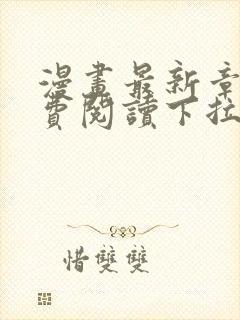 漫畫最新章
費閱讀下拉
惜雙雙